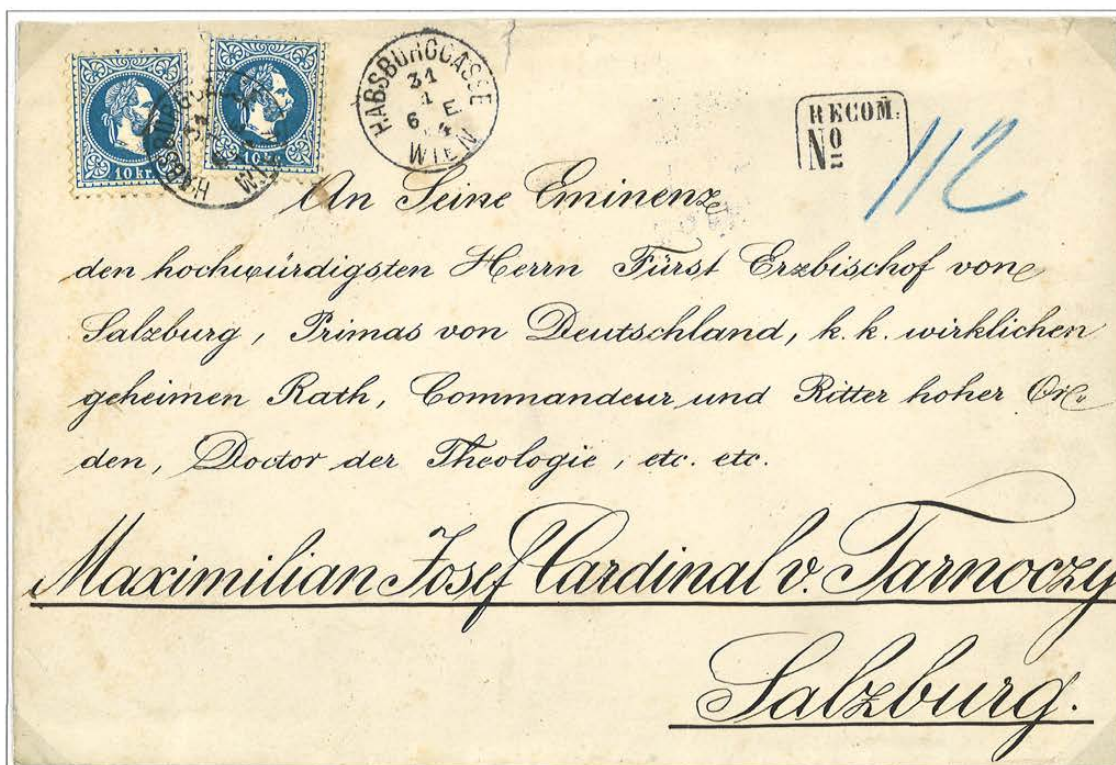 10 kr.
10
HABSBURGGASSE
31
1
6 E
WIEN
RECOM:
No
112
An Seine Eminenz
den hochwürdigsten Herrn Fürst Erzbischof von
Salzburg, Primas von Deutschland, k. k. wirklichen
geheimen Rath, Commandeur und Ritter hoher Or-
den, Doctor der Theologie, etc. etc.
Maximilian Josef Cardinal v. Tarnoczy
Salzburg.